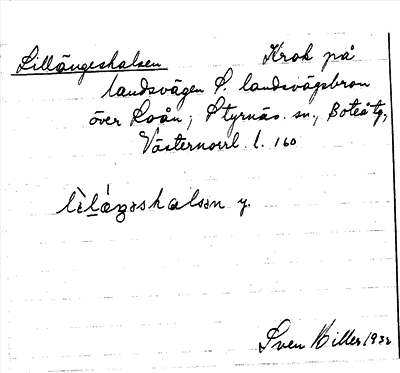 Lillängeskalsen Krok på
landsvägen S. landsvägsbron
över Loån; Styrnäs sn, Boteå tg,
Västernorrl. l. 160
lìláŋəskalsən y.
Sven Hiller 1932